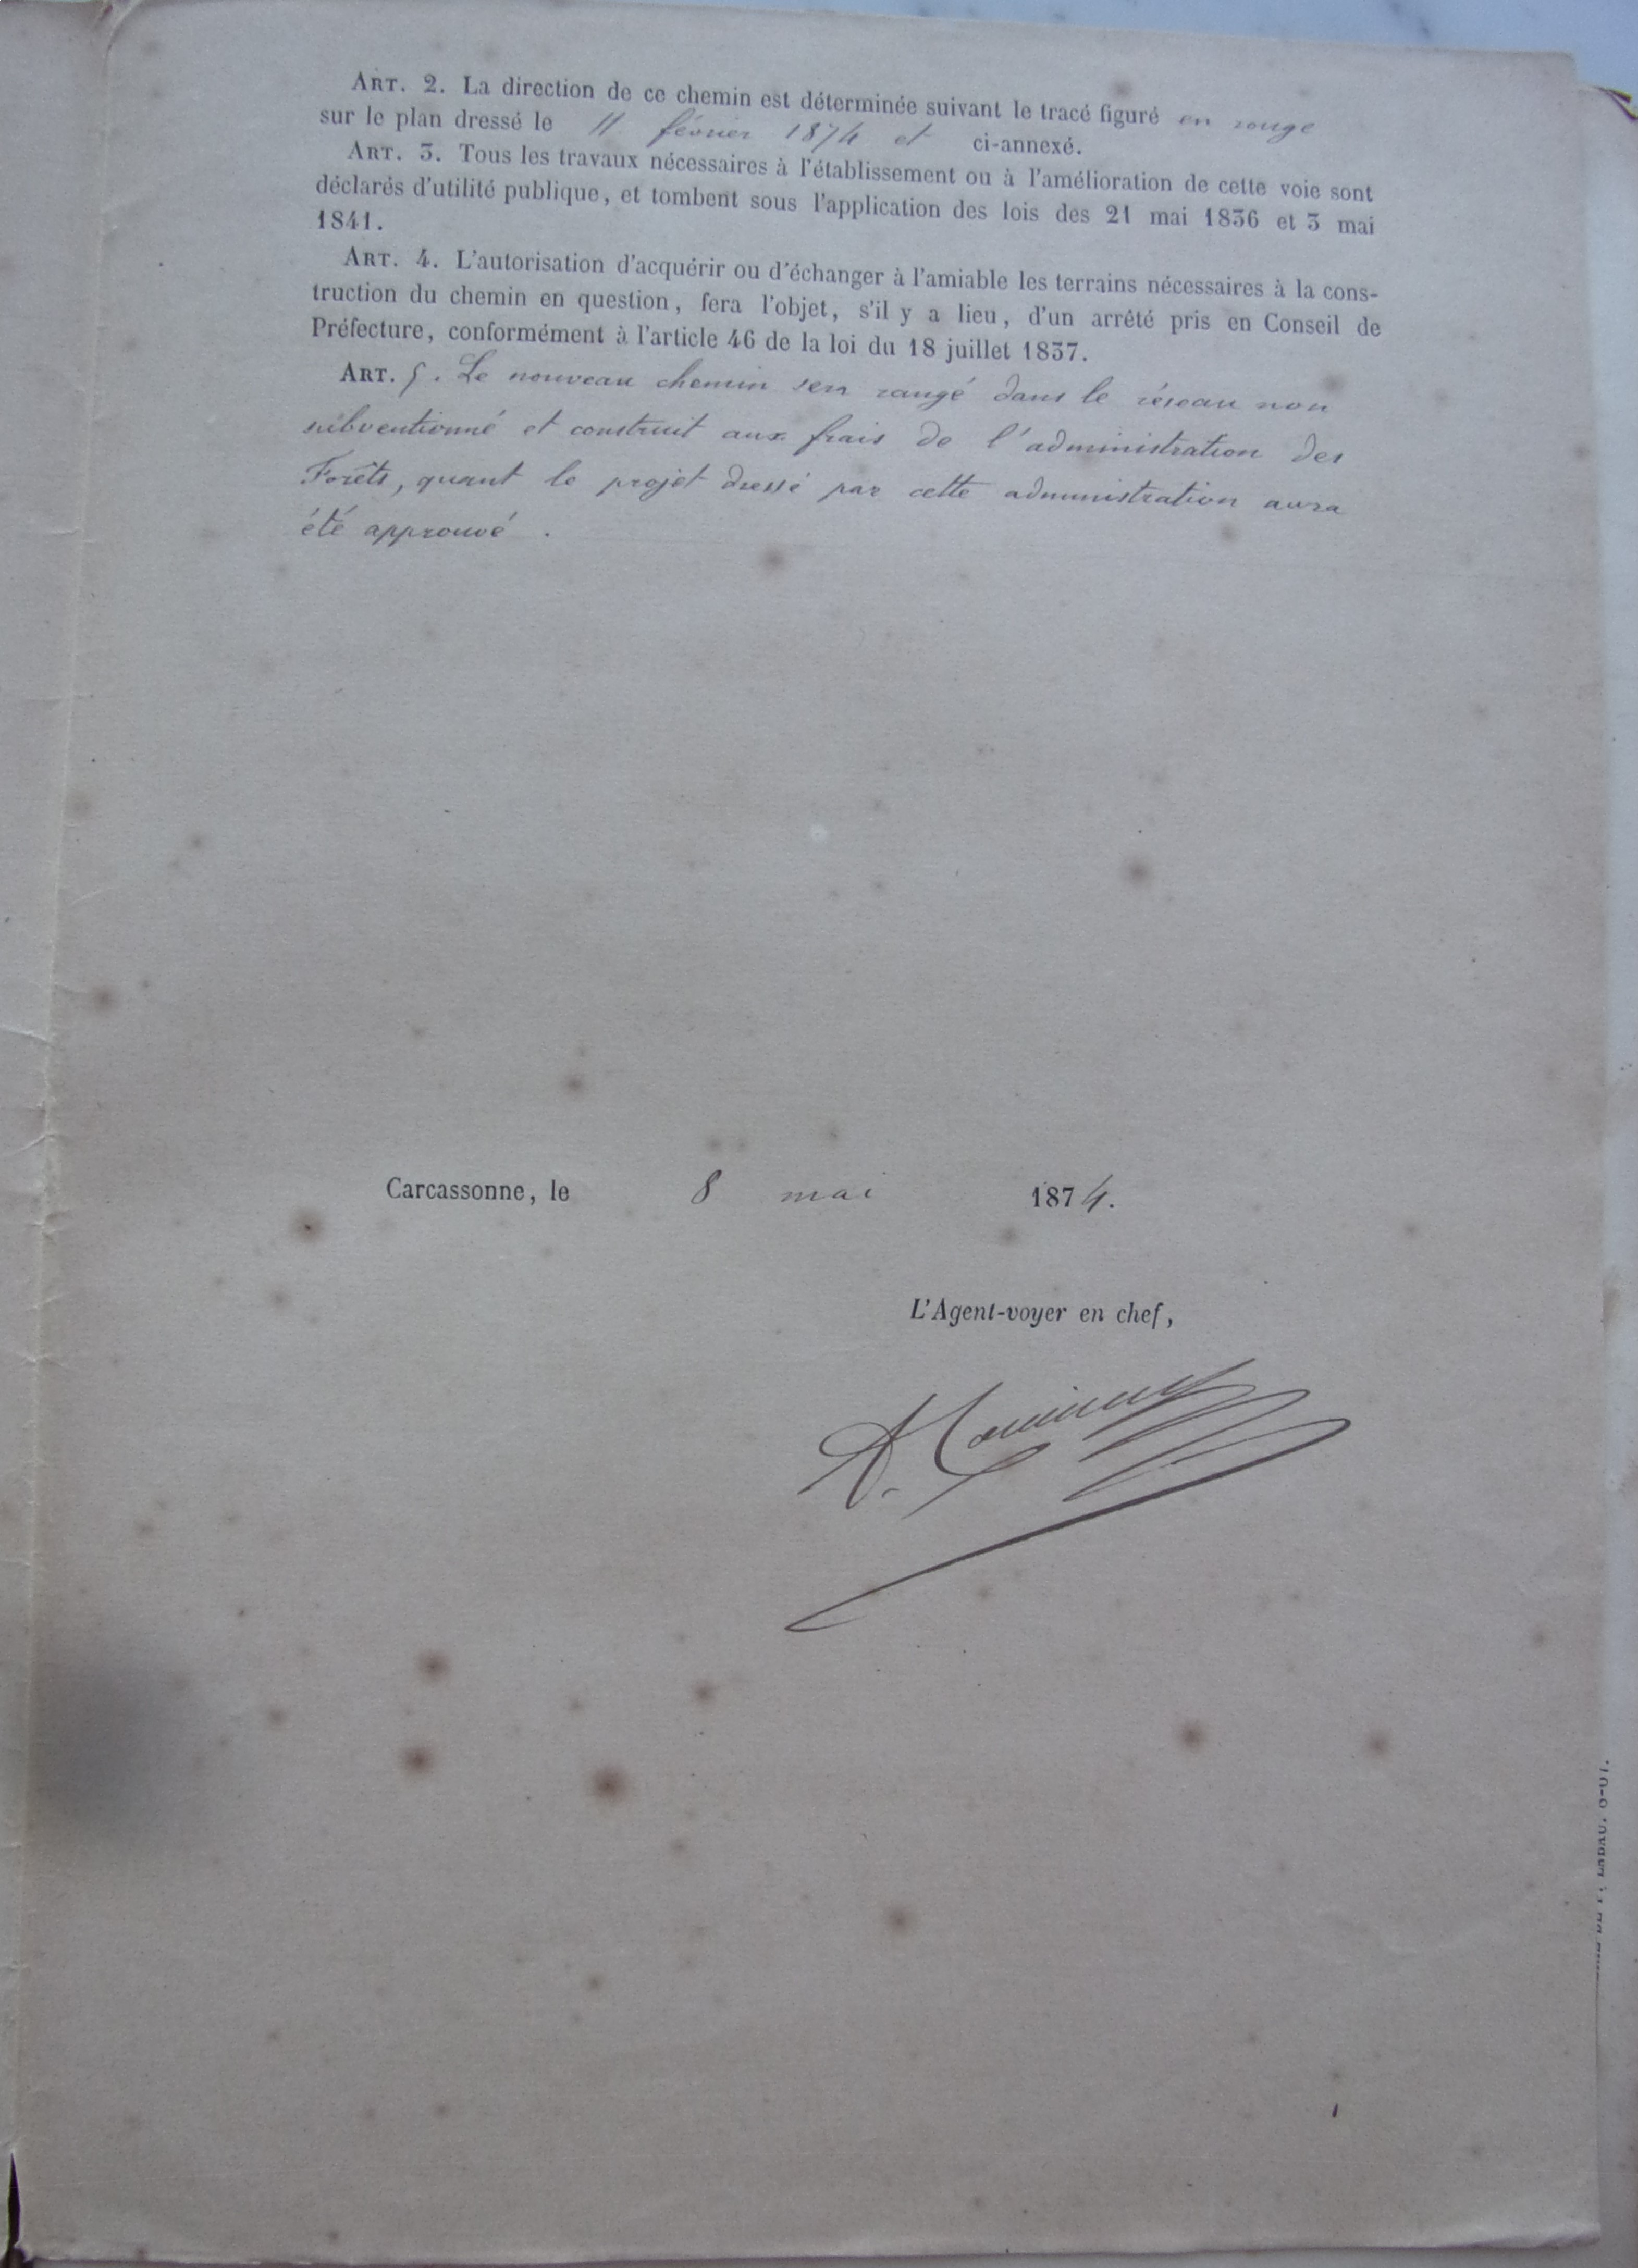 ART. 2. La direction de ce chemin est déterminée suivant le tracé figuré en rouge
sur le plan dressé le 11 février 1874 et ci-annexé.
ART. 3. Tous les travaux nécessaires à l'établissement ou à l'amélioration de cette voie sont
déclarés d'utilité publique, et tombent sous l'application des lois des 21 mai 1836 et 3 mai
1841.
ART. 4. L'autorisation d'acquérir ou d'échanger à l'amiable les terrains nécessaires à la cons-
truction du chemin en question, fera l'objet, s'il y a lieu, d'un arrêté pris en Conseil de
Préfecture, conformément à l'article 46 de la loi du 18 juillet 1837.
ART. 5. Le nouveau chemin sera rangé dans le réseau non
subventionné et construit aux frais de l'administration des
Forêts, quant le projet dressé par cette administration aura
été approuvé.
Carcassonne, le 8 mai 1874.
L'Agent-voyer en chef,